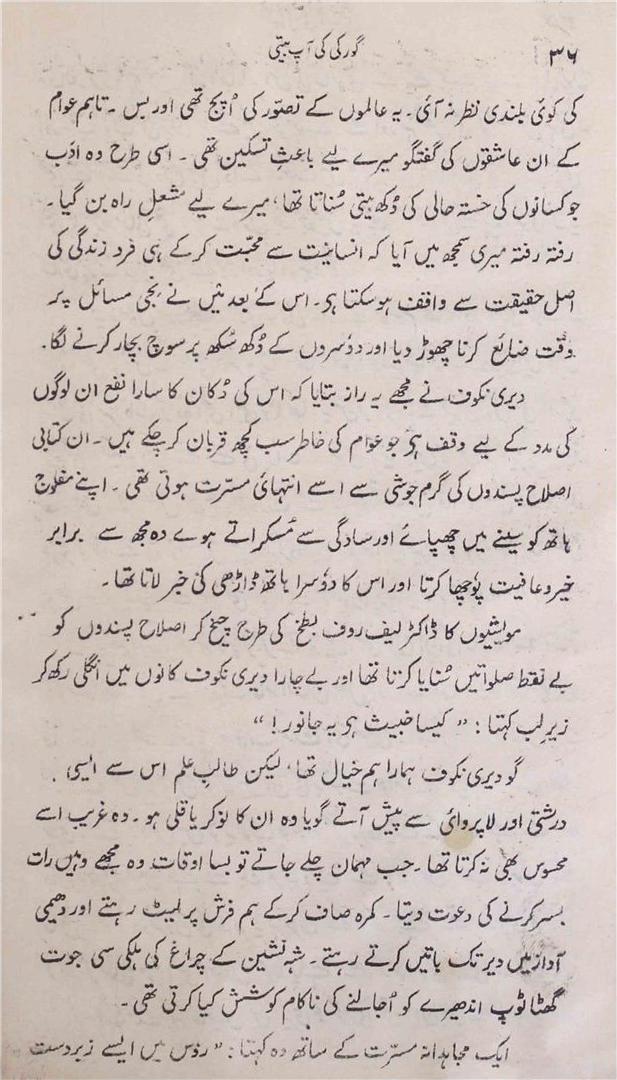 ۳۶ گورکی کی آپ بیتی
کی کوئی بلندی نظر نہ آئی۔ یہ عالموں کے تصوّر کی اُپج تھی اور بس۔ تاہم عوام
کے ان عاشقوں کی گفتگو میرے لیے باعثِ تسکین تھی۔ اسی طرح وہ ادب
جو کسانوں کی خستہ حالی کی دُکھ بیتی سُناتا تھا، میرے لیے مشعلِ راہ بن گیا۔
رفتہ رفتہ میری سمجھ میں آیا کہ انسانیت سے محبّت کر کے ہی فرد زندگی کی
اصل حقیقت سے واقف ہو سکتا ہی۔ اس کے بعد میں نے نجی مسائل پر
وقت ضائع کرنا چھوڑ دیا اور دوٗسروں کے دُکھ سُکھ پر سوچ بچار کرنے لگا۔
دیری نکوف نے مجھے یہ راز بتایا کہ اس کی دُکان کا سارا نفع ان لوگوں
کی مدد کے لیے وقف ہی جو عوام کی خاطر سب کچھ قربان کر چکے ہیں۔ ان کتابی
اصلاح پسندوں کی گرم جوشی سے اسے انتہائی مسرّت ہوتی تھی۔ اپنے مفلوج
ہاتھ کو سینے میں چھپائے اور سادگی سے مُسکراتے ہوے وہ مجھ سے برابر
خیر و عافیت پوٗچھا کرتا اور اس کا دوٗسرا ہاتھ ڈاڑھی کی خبر لاتا تھا۔
مویشیوں کا ڈاکٹر لیف روف بطخ کی طرح چیخ کر اصلاح پسندوں کو
بے نقط صلواتیں سُنایا کرتا تھا اور بے چارا دیری نکوف کانوں میں انگلی رکھ کر
زیرِ لب کہتا: "کیسا خبیث ہی یہ جانور!"
گو دیری نکوف ہمارا ہم خیال تھا، لیکن طالبِ علم اس سے ایسی
درشتی اور لاپروائی سے پیش آتے گویا وہ ان کا نوکر یا قلی ہو۔ وہ غریب اسے
محسوس بھی نہ کرتا تھا۔ جب مہمان چلے جاتے تو بسا اوقات وہ مجھے وہیں رات
بسر کرنے کی دعوت دیتا۔ کمرہ صاف کر کے ہم فرش پر لیٹ رہتے اور دھیمی
آواز میں دیر تک باتیں کرتے رہتے۔ شہ نشین کے چراغ کی ہلکی سی جوت
گھٹا ٹوپ اندھیرے کو اُجالنے کی ناکام کوشش کیا کرتی تھی۔
ایک مجاہدانہ مسرّت کے ساتھ وہ کہتا: "روٗس میں ایسے زبردست